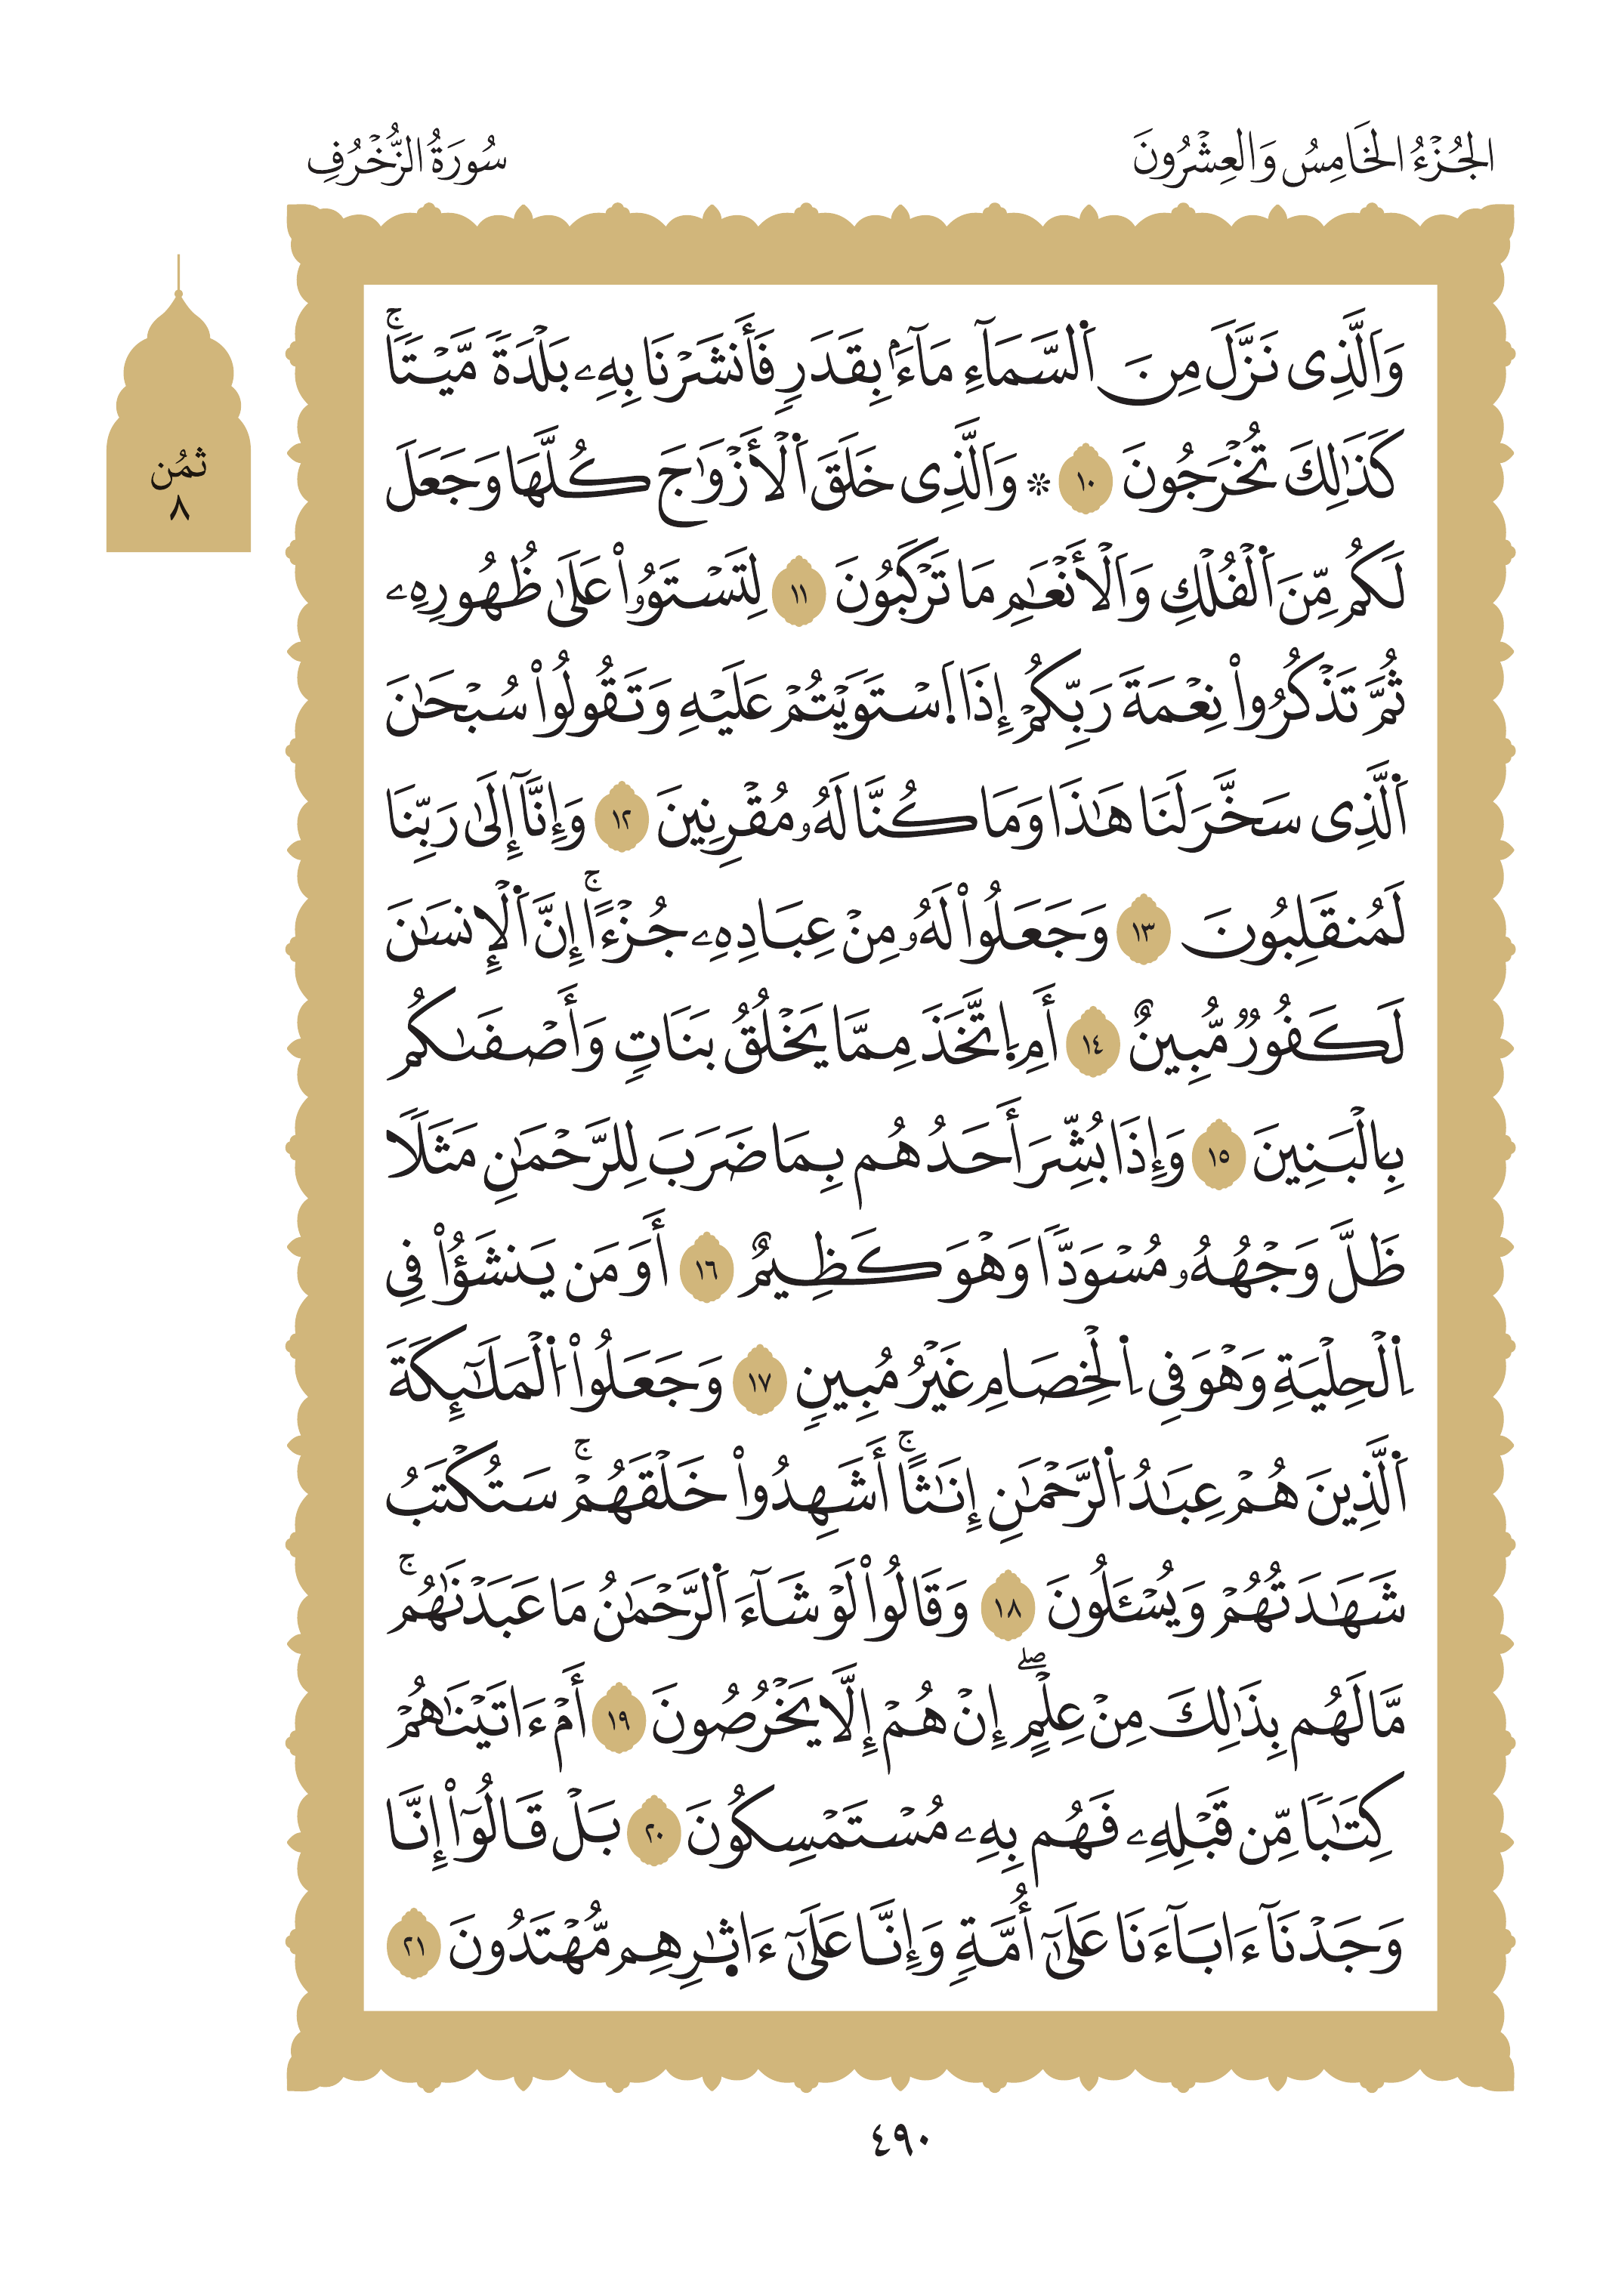 الجُزْءُ الخَامِسُ وَالعِشْرُونَ
سُورَةُ الزُّخْرُفِ
ثُمُن
٨
وَاَلَّذِى نَزَّلَ مِنَ اَ۬لسَّمَآءِ مَآءَۢ بِقَدَرٍ فَأَنشَرْنَا بِهِۦ بَلْدَةً مَّيْتًاۚ
كَذَٰلِكَ تُخْرَجُونَ ١٠ ۞ وَاَلَّذِى خَلَقَ اَ۬لْأَزْوَٰجَ كُلَّهَا وَجَعَلَ
لَكُم مِّنَ اَ۬لْفُلْكِ وَالْأَنْعَٰمِ مَا تَرْكَبُونَ ١١ لِتَسْتَوُۥاْ عَلَىٰ ظُهُورِهِۦ
ثُمَّ تَذْكُرُواْ نِعْمَةَ رَبِّكُمْ إِذَا اَ۪سْتَوَيْتُمْ عَلَيْهِ وَتَقُولُواْ سُبْحَٰنَ
اَ۬لَّذِى سَخَّرَ لَنَا هَٰذَا وَمَا كُنَّا لَهُۥ مُقْرِنِينَ ١٢ وَإِنَّآ إِلَىٰ رَبِّنَا
لَمُنقَلِبُونَ ١٣ وَجَعَلُواْ لَهُۥ مِنْ عِبَادِهِۦ جُزْءًاۚ إِنَّ اَ۬لْإِنسَٰنَ
لَكَفُورٌ مُّبِينٌ ١٤ أَمِ اِ۪تَّخَذَ مِمَّا يَخْلُقُ بَنَاتٍ وَأَصْفَىٰكُم
بِالْبَنِينَ ١٥ وَإِذَا بُشِّرَ أَحَدُهُم بِمَا ضَرَبَ لِلرَّحْمَٰنِ مَثَلًا
ظَلَّ وَجْهُهُۥ مُسْوَدًّا وَهْوَ كَظِيمٌ ١٦ أَوَمَن يَنشَؤُاْ فِى
اِ۬لْحِلْيَةِ وَهْوَ فِى اِ۬لْخِصَامِ غَيْرُ مُبِينٍ ١٧ وَجَعَلُواْ اَ۬لْمَلَٰٓئِكَةَ
اَ۬لَّذِينَ هُمْ عِبَٰدُ اَ۬لرَّحْمَٰنِ إِنَٰثًاۚ أَشَهِدُواْ خَلْقَهُمْۚ سَتُكْتَبُ
شَهَٰدَتُهُمْ وَيُسْـَٔلُونَ ١٨ وَقَالُواْ لَوْ شَآءَ اَ۬لرَّحْمَٰنُ مَا عَبَدْنَٰهُمۚ
مَّا لَهُم بِذَٰلِكَ مِنْ عِلْمٍۖ إِنْ هُمْ إِلَّا يَخْرُصُونَ ١٩ أَمْ ءَاتَيْنَٰهُمْ
كِتَٰبًا مِّن قَبْلِهِۦ فَهُم بِهِۦ مُسْتَمْسِكُونَ ٢٠ بَلْ قَالُوٓاْ إِنَّا
وَجَدْنَآ ءَابَآءَنَا عَلَىٰٓ أُمَّةٍ وَإِنَّا عَلَىٰٓ ءَاثٰ۪رِهِم مُّهْتَدُونَ ٢١
٤٩٠